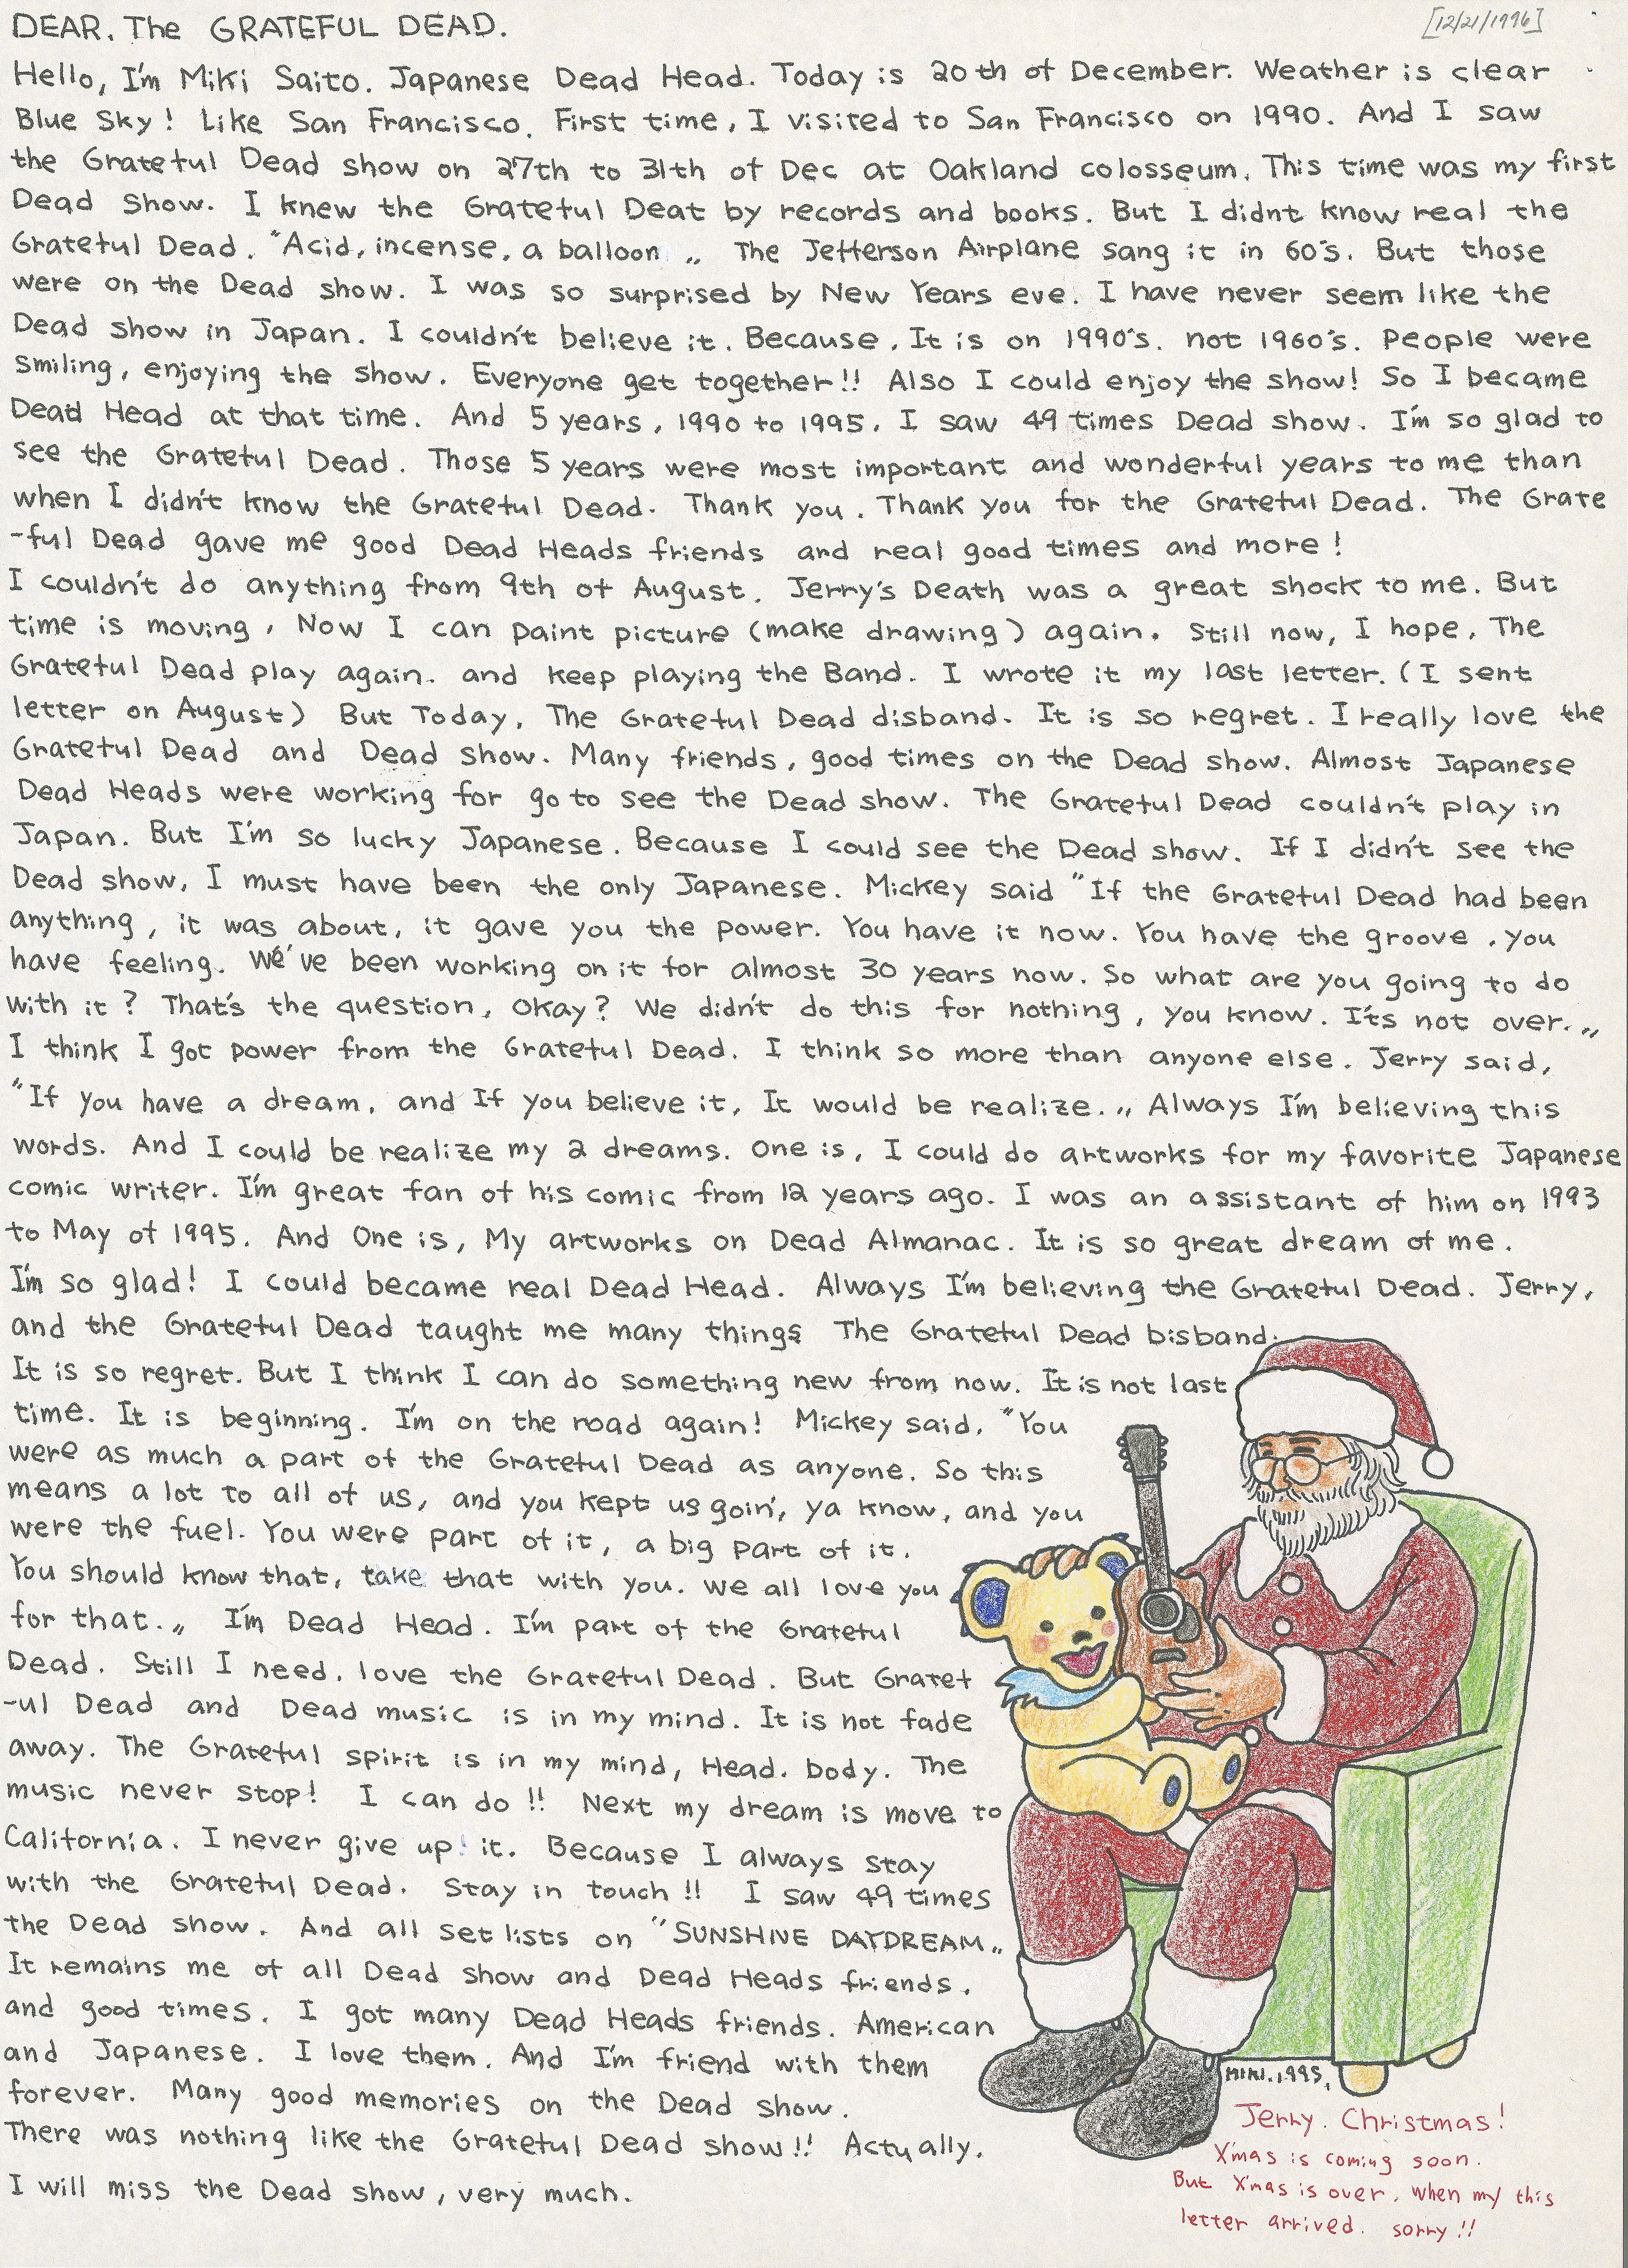 DEAR. The GRATEFUL DEAD.
[12/21/1996]
Hello, I'm Miki Saito. Japanese Dead Head. Today is 20th of December. Weather is clear
Blue Sky! Like San Francisco. First time, I visited to San Francisco on 1990. And I saw
the Grateful Dead show on 27th to 31th of Dec at Oakland colosseum. This time was my first
Dead Show. I knew the Grateful Deat by records and books. But I didnt know real the
Grateful Dead. "Acid, incense, a balloon „ The Jefferson Airplane sang it in 60's. But those
were on the Dead show. I was so surprised by New Years eve. I have never seem like the
Dead show in Japan. I couldn't believe it. Because, It is on 1990's. not 1960's. People were
smiling, enjoying the show. Everyone get together!! Also I could enjoy the show! So I became
Dead Head at that time. And 5 years, 1990 to 1995, I saw 49 times Dead show. I'm so glad to
see the Grateful Dead. Those 5 years were most important and wonderful years to me than
when I didn't know the Grateful Dead. Thank you. Thank you for the Grateful Dead. The Grate
-ful Dead gave me good Dead Heads friends and real good times and more!
I couldn't do anything from 9th of August. Jerry's Death was a great shock to me. But
time is moving, Now I can paint picture (make drawing) again. Still now, I hope, The
Grateful Dead play again. and keep playing the Band. I wrote it my last letter. (I sent
letter on August) But Today, The Grateful Dead disband. It is so regret. I really love the
Grateful Dead and Dead show. Many friends, good times on the Dead show. Almost Japanese
Dead Heads were working for go to see the Dead show. The Grateful Dead couldn't play in
Japan. But I'm so lucky Japanese. Because I could see the Dead show. If I didn't see the
Dead show, I must have been the only Japanese. Mickey said "If the Grateful Dead had been
anything, it was about, it gave you the power. You have it now. You have the groove, you
have feeling. We've been working on it for almost 30 years now. So what are you going to do
with it? That's the question, Okay? We didn't do this for nothing, you know. It's not over.„
I think I got power from the Grateful Dead. I think so more than anyone else. Jerry said,
"If you have a dream, and If you believe it, It would be realize.„ Always I'm believing this
words. And I could be realize my 2 dreams. One is, I could do artworks for my favorite Japanese
comic writer. I'm great fan of his comic from 12 years ago. I was an assistant of him on 1993
to May of 1995. And One is, My artworks on Dead Almanac. It is so great dream of me.
I'm so glad! I could became real Dead Head. Always I'm believing the Grateful Dead. Jerry,
and the Grateful Dead taught me many things The Grateful Dead bisband.
It is so regret. But I think I can do something new from now. It is not last
time. It is beginning. I'm on the road again! Mickey said, "You
were as much a part of the Grateful Dead as anyone. So this
means a lot to all of us, and you kept us goin', ya know, and you
were the fuel. You were part of it, a big part of it.
You should know that, take that with you. we all love you
for that.„ I'm Dead Head. I'm part of the Grateful
Dead. Still I need. love the Grateful Dead. But Gratef
-ul Dead and Dead music is in my mind. It is not fade
away. The Grateful spirit is in my mind, Head. body. The
music never stop! I can do!! Next my dream is move to
California. I never give up it. Because I always stay
with the Grateful Dead. Stay in touch!! I saw 49 times
the Dead show. And all set lists on "SUNSHINE DAYDREAM„
It remains me of all Dead show and Dead Heads friends.
and good times. I got many Dead Heads friends. American
and Japanese. I love them. And I'm friend with them
forever. Many good memories on the Dead show.
There was nothing like the Grateful Dead show!! Actually.
I will miss the Dead show, very much.
MIKI.1995.
Jerry. Christmas!
X'mas is coming soon.
But X'mas is over, when my this
letter arrived. sorry!!